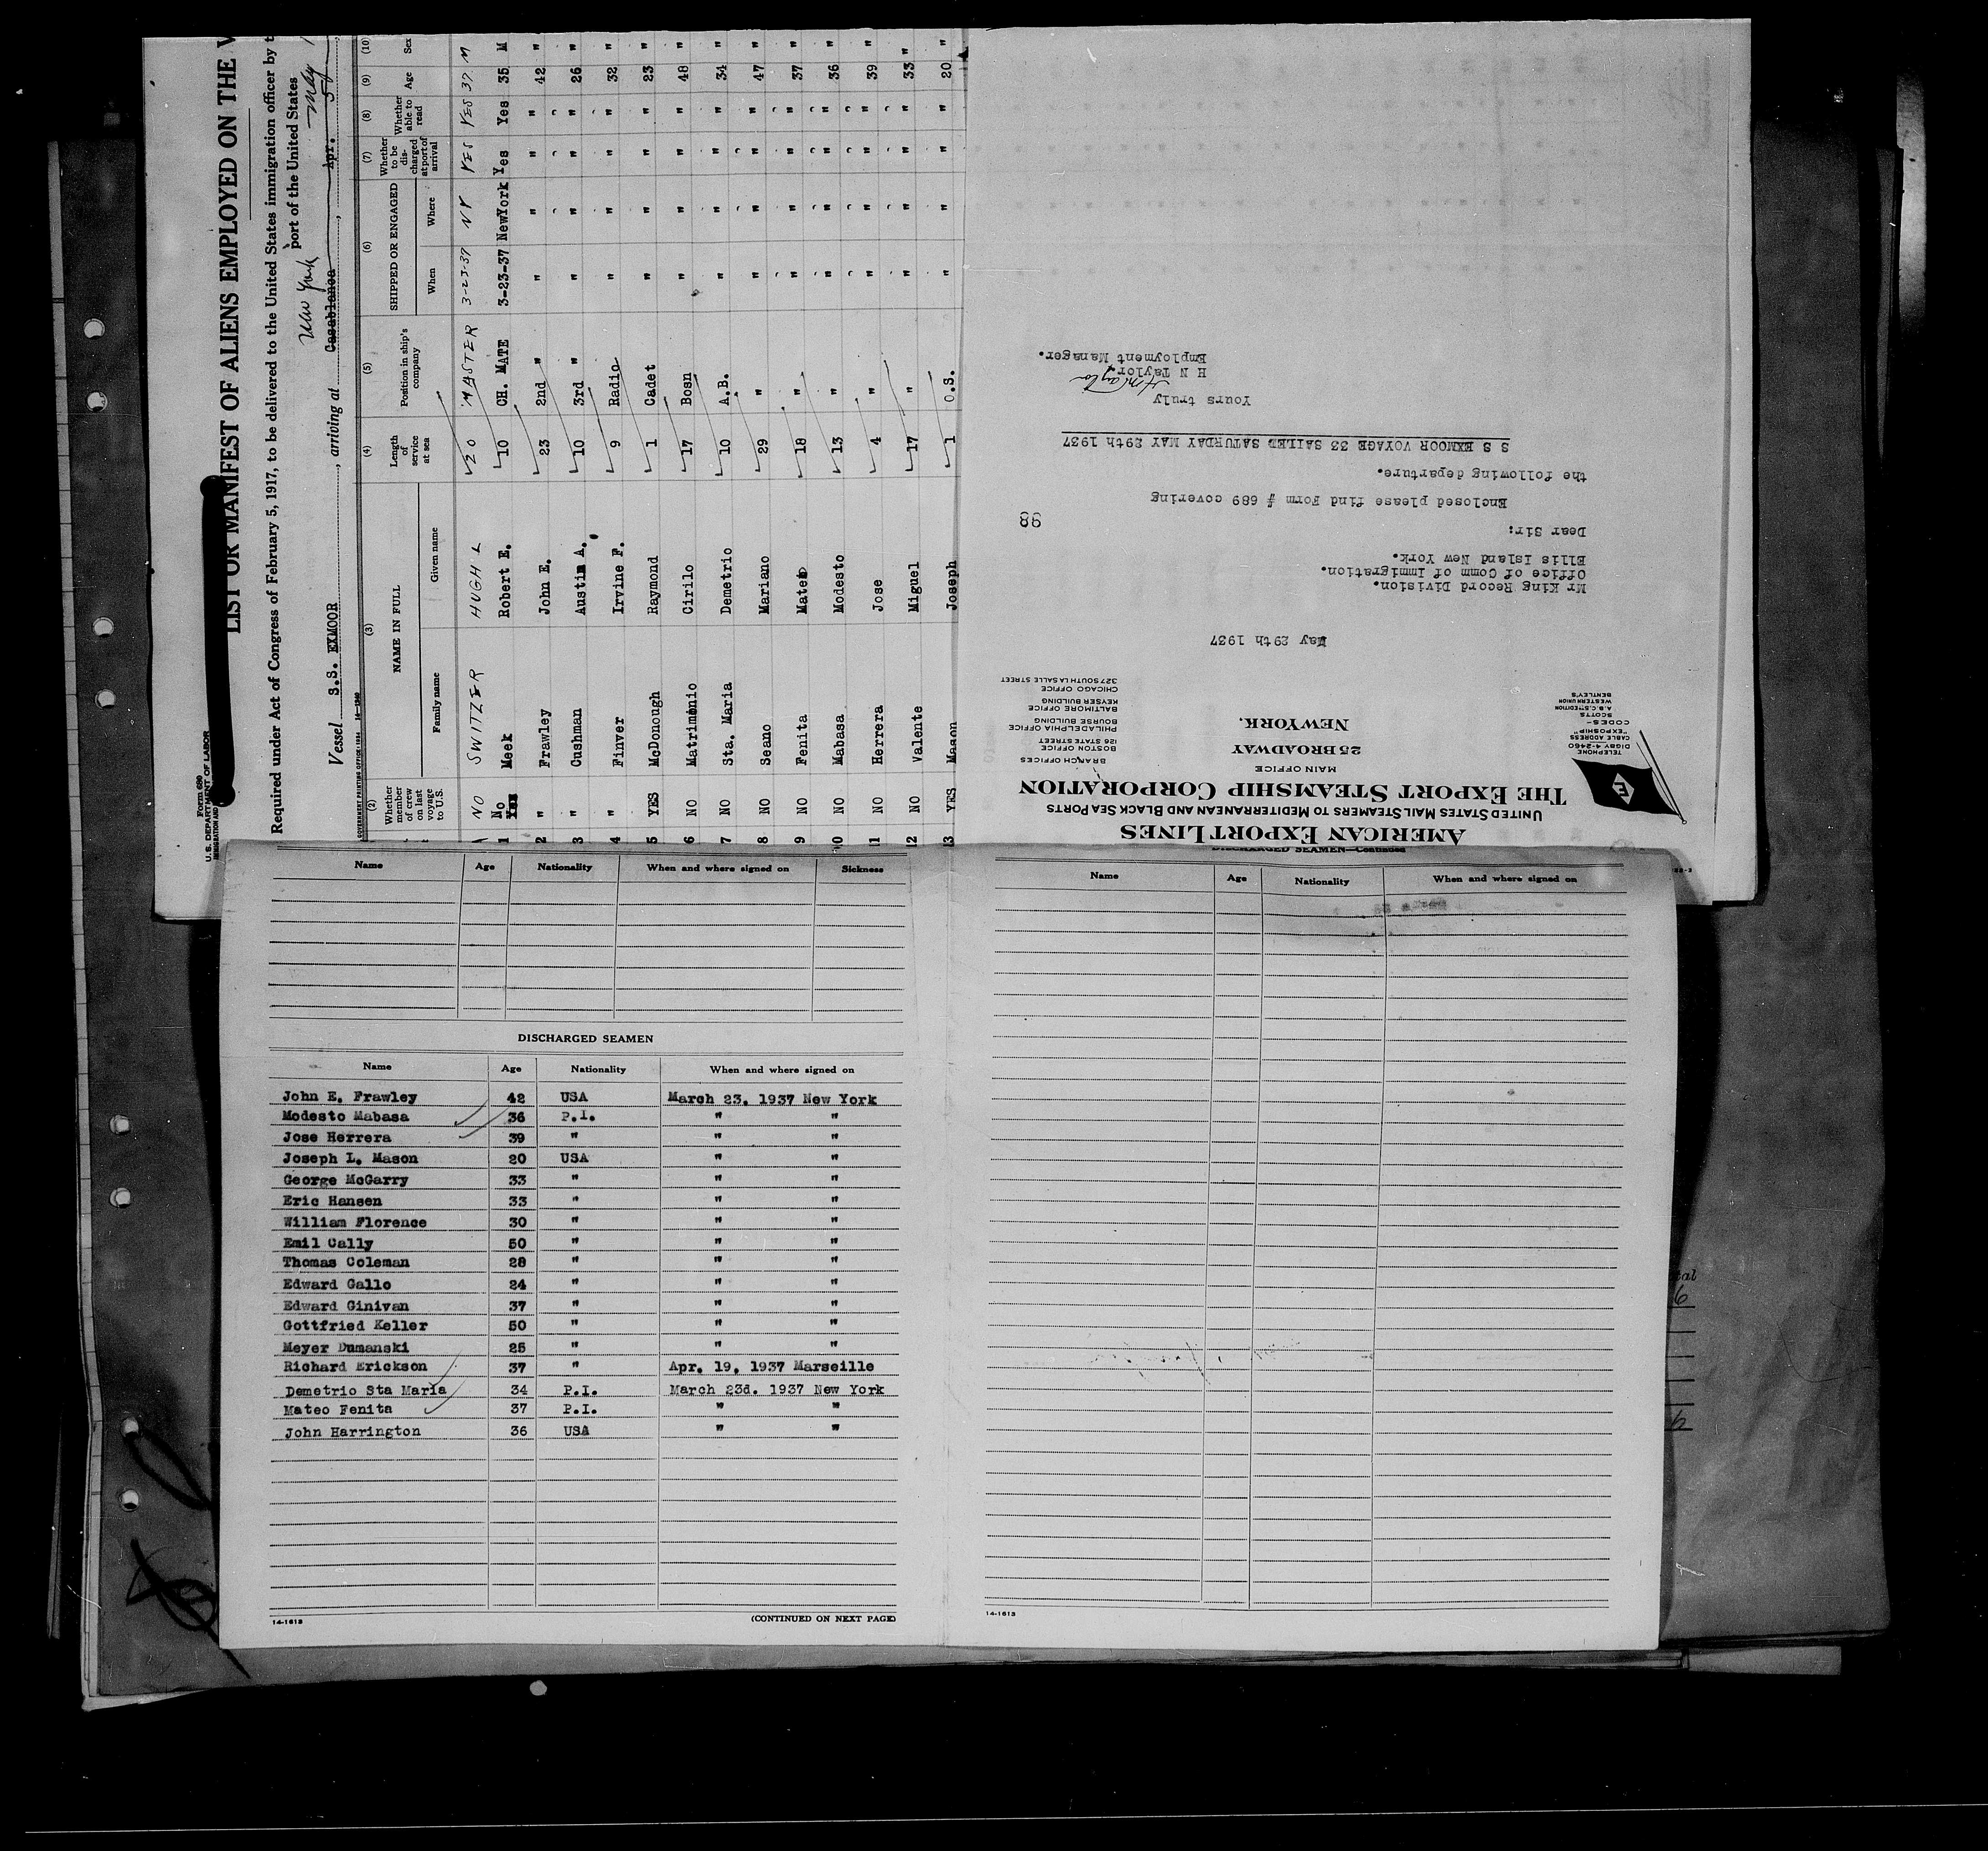 Form 689
U.S. DEPARTMENT OF LABOR
LIST OR MANIFEST OF ALIENS EMPLOYED ON THE
Required under Act of Congress of February 5, 1917, to be delivered to the United States immigration officer by
New York port of the United States May
Vessel S.S. EXMOOR, arriving at Casablanca, Apr. 5
GOVERNMENT PRINTING OFFICE: 1934 14—1240
(2) (3) (4) (5) (6) (7) (8) (9) (10)
Whether member of crew on last voyage to U.S. NAME IN FULL Family name Given name Length of service at sea Position in ship's company SHIPPED OR ENGAGED When Where Whether to be discharged at port of arrival Whether able to read Age Sex
NO SWITZER HUGH L 20 MASTER 3-23-37 NY YES YES 37 M
1 No Meek Robert E. 10 CH. MATE 3-23-37 NewYork Yes Yes 35 M
2 " Frawley John E. 23 2nd " " " " " 42 "
3 " Cushman Austin A. 10 3rd " " " " " 26 "
4 " Finver Irvine F. 9 Radio " " " " 32 "
5 YES McDonough Raymond 1 Cadet " " " " 23 "
6 NO Matrimonio Cirilo 17 Bosn " " " " 48 "
7 NO Sta. Maria Demetrio 10 A.B. " " " " 34 "
8 NO Seano Mariano 29 " " " " " 47 "
9 NO Fenita Mateo 18 " " " " " 37 "
10 NO Mabasa Modesto 13 " " " " " 36 "
11 NO Herrera Jose 4 " " " " " 39 "
12 NO Valente Miguel 17 " " " " " 33 "
13 YES Mason Joseph 1 O.S. " " " " 20 "
AMERICAN EXPORT LINES
UNITED STATES MAIL STEAMERS TO MEDITERRANEAN AND BLACK SEA PORTS
THE EXPORT STEAMSHIP CORPORATION
MAIN OFFICE
25 BROADWAY
NEW YORK.
TELEPHONE
DIGBY 4-2460
CABLE ADDRESS
"EXPOSHIP"
CODES-
SCOTTS
A.B.C. 5TH EDITION
WESTERN UNION
BENTLEY'S
BRANCH OFFICES
BOSTON OFFICE
126 STATE STREET
PHILADELPHIA OFFICE
BOURSE BUILDING
BALTIMORE OFFICE
KEYSER BUILDING
CHICAGO OFFICE
327 SOUTH LASALLE STREET
May 29th 1937
Mr King Record Division.
Office of Comm of Immigration.
Ellis Island New York.
Dear Sir:
98
Enclosed please find Form # 689 covering
the following departure.
S S EXMOOR VOYAGE 33 SAILED SATURDAY MAY 29th 1937
Yours truly
HNTaylor
H N Taylor
Employment Manager.
Name Age Nationality When and where signed on Sickness
DISCHARGED SEAMEN
Name Age Nationality When and where signed on
John E. Frawley 42 USA March 23. 1937 New York
Modesto Mabasa 36 P.I. " "
Jose Herrera 39 " " "
Joseph L. Mason 20 USA " "
George McGarry 33 " " "
Eric Hansen 33 " " "
William Florence 30 " " "
Emil Cally 50 " " "
Thomas Coleman 28 " " "
Edward Gallo 24 " " "
Edward Ginivan 37 " " "
Gottfried Keller 50 " " "
Meyer Dumanski 25 " " "
Richard Erickson 37 " Apr. 19. 1937 Marseille
Demetrio Sta Maria 34 P.I. March 23d. 1937 New York
Mateo Fenita 37 P.I. " "
John Harrington 36 USA " "
14-1613
(CONTINUED ON NEXT PAGE)
DISCHARGED SEAMEN—Continued
Name Age Nationality When and where signed on
14-1613